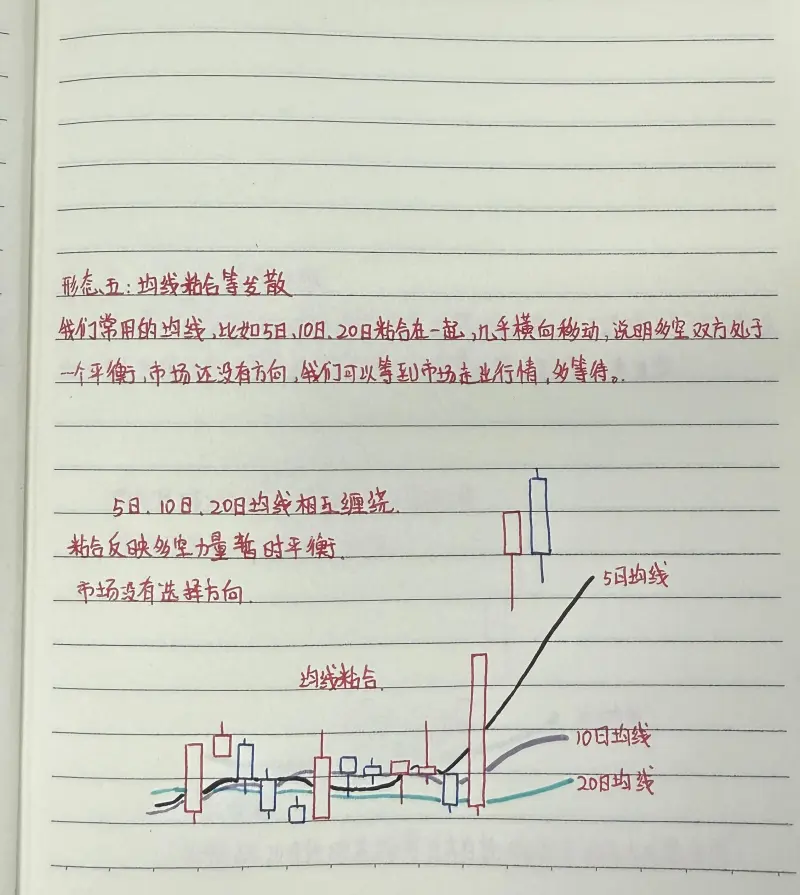 形态五：均线粘合等发散
我们常用的均线，比如5日、10日、20日粘合在一起，几乎横向移动，说明多空双方处于
一个平衡，市场还没有方向，我们可以等到市场走出行情，多等待。
5日、10日、20日均线相互缠绕.
粘合反映多空力量暂时平衡.
市场没有选择方向.
5日均线
均线粘合.
10日均线
20日均线